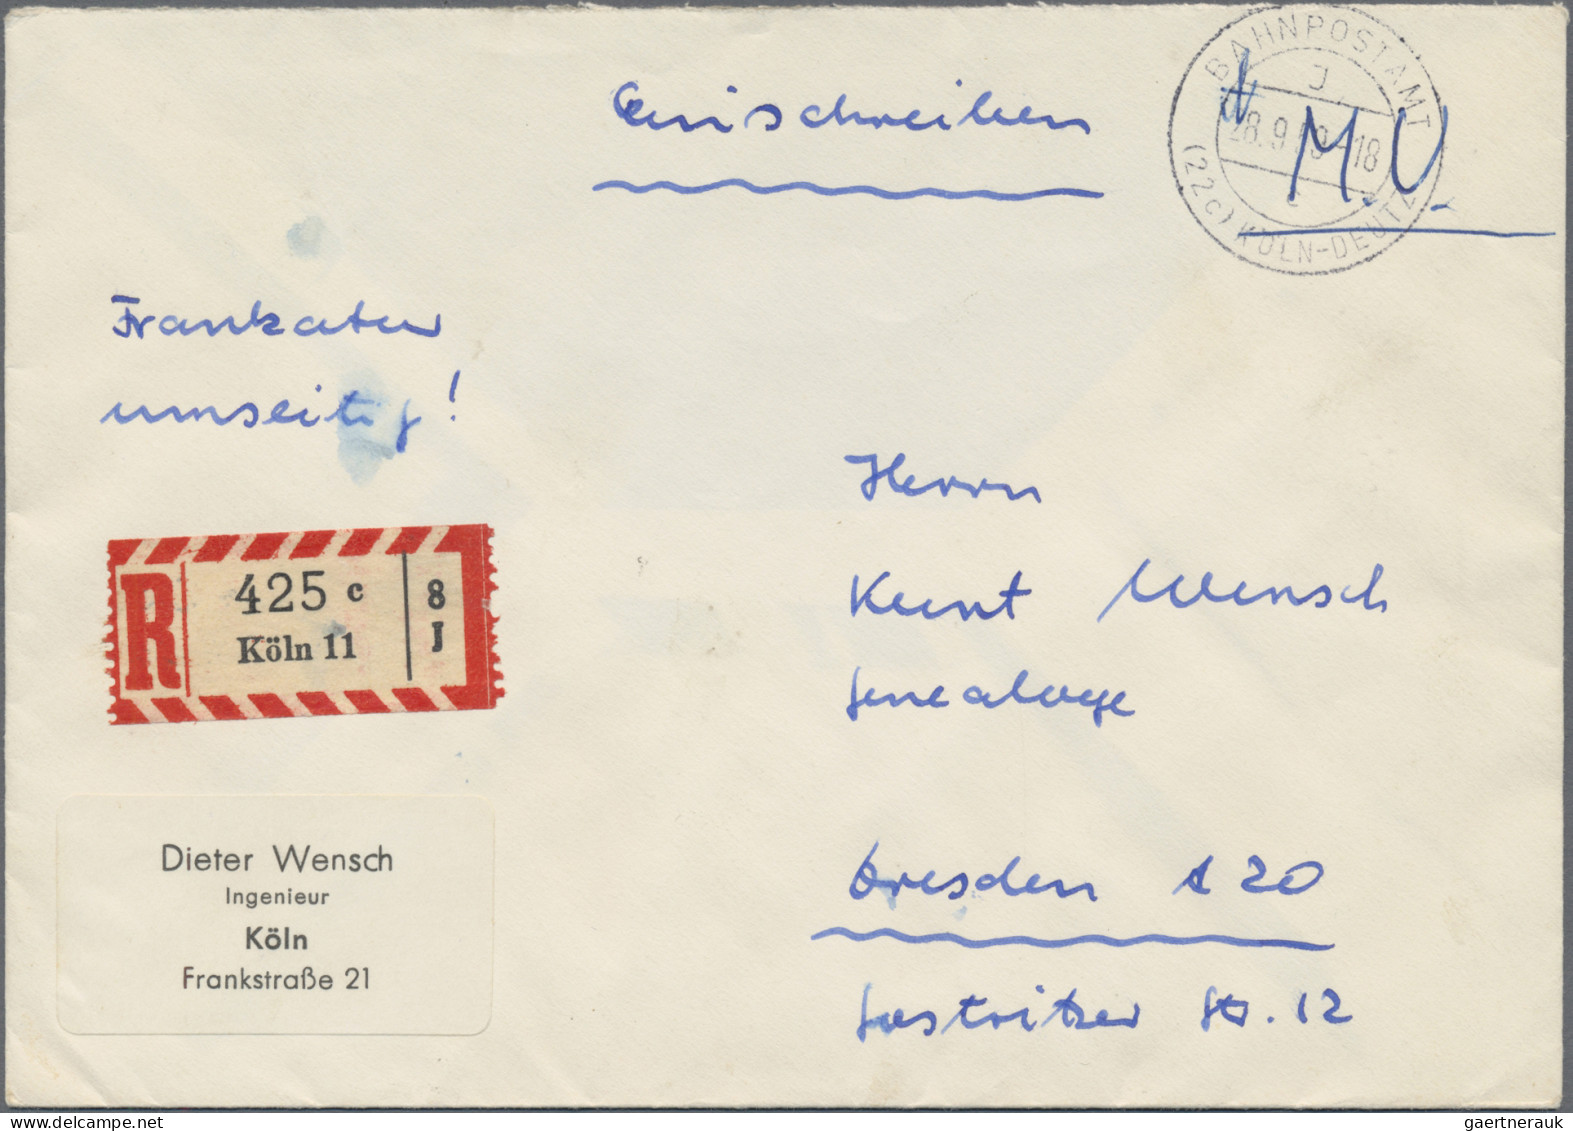 BAHNPOSTAMT
J
28.9.59-18
c
(22c) KÖLN-DEUTZ
Einschreiben
M.U.
Frankatur
umseitig!
Herrn
R
425 c
8
Kurt Wensch
Köln 11
J
Genealoge
Dieter Wensch
Ingenieur
Köln
Frankstraße 21
Dresden A 20
Gostritzer Str. 12
gaertnerauk